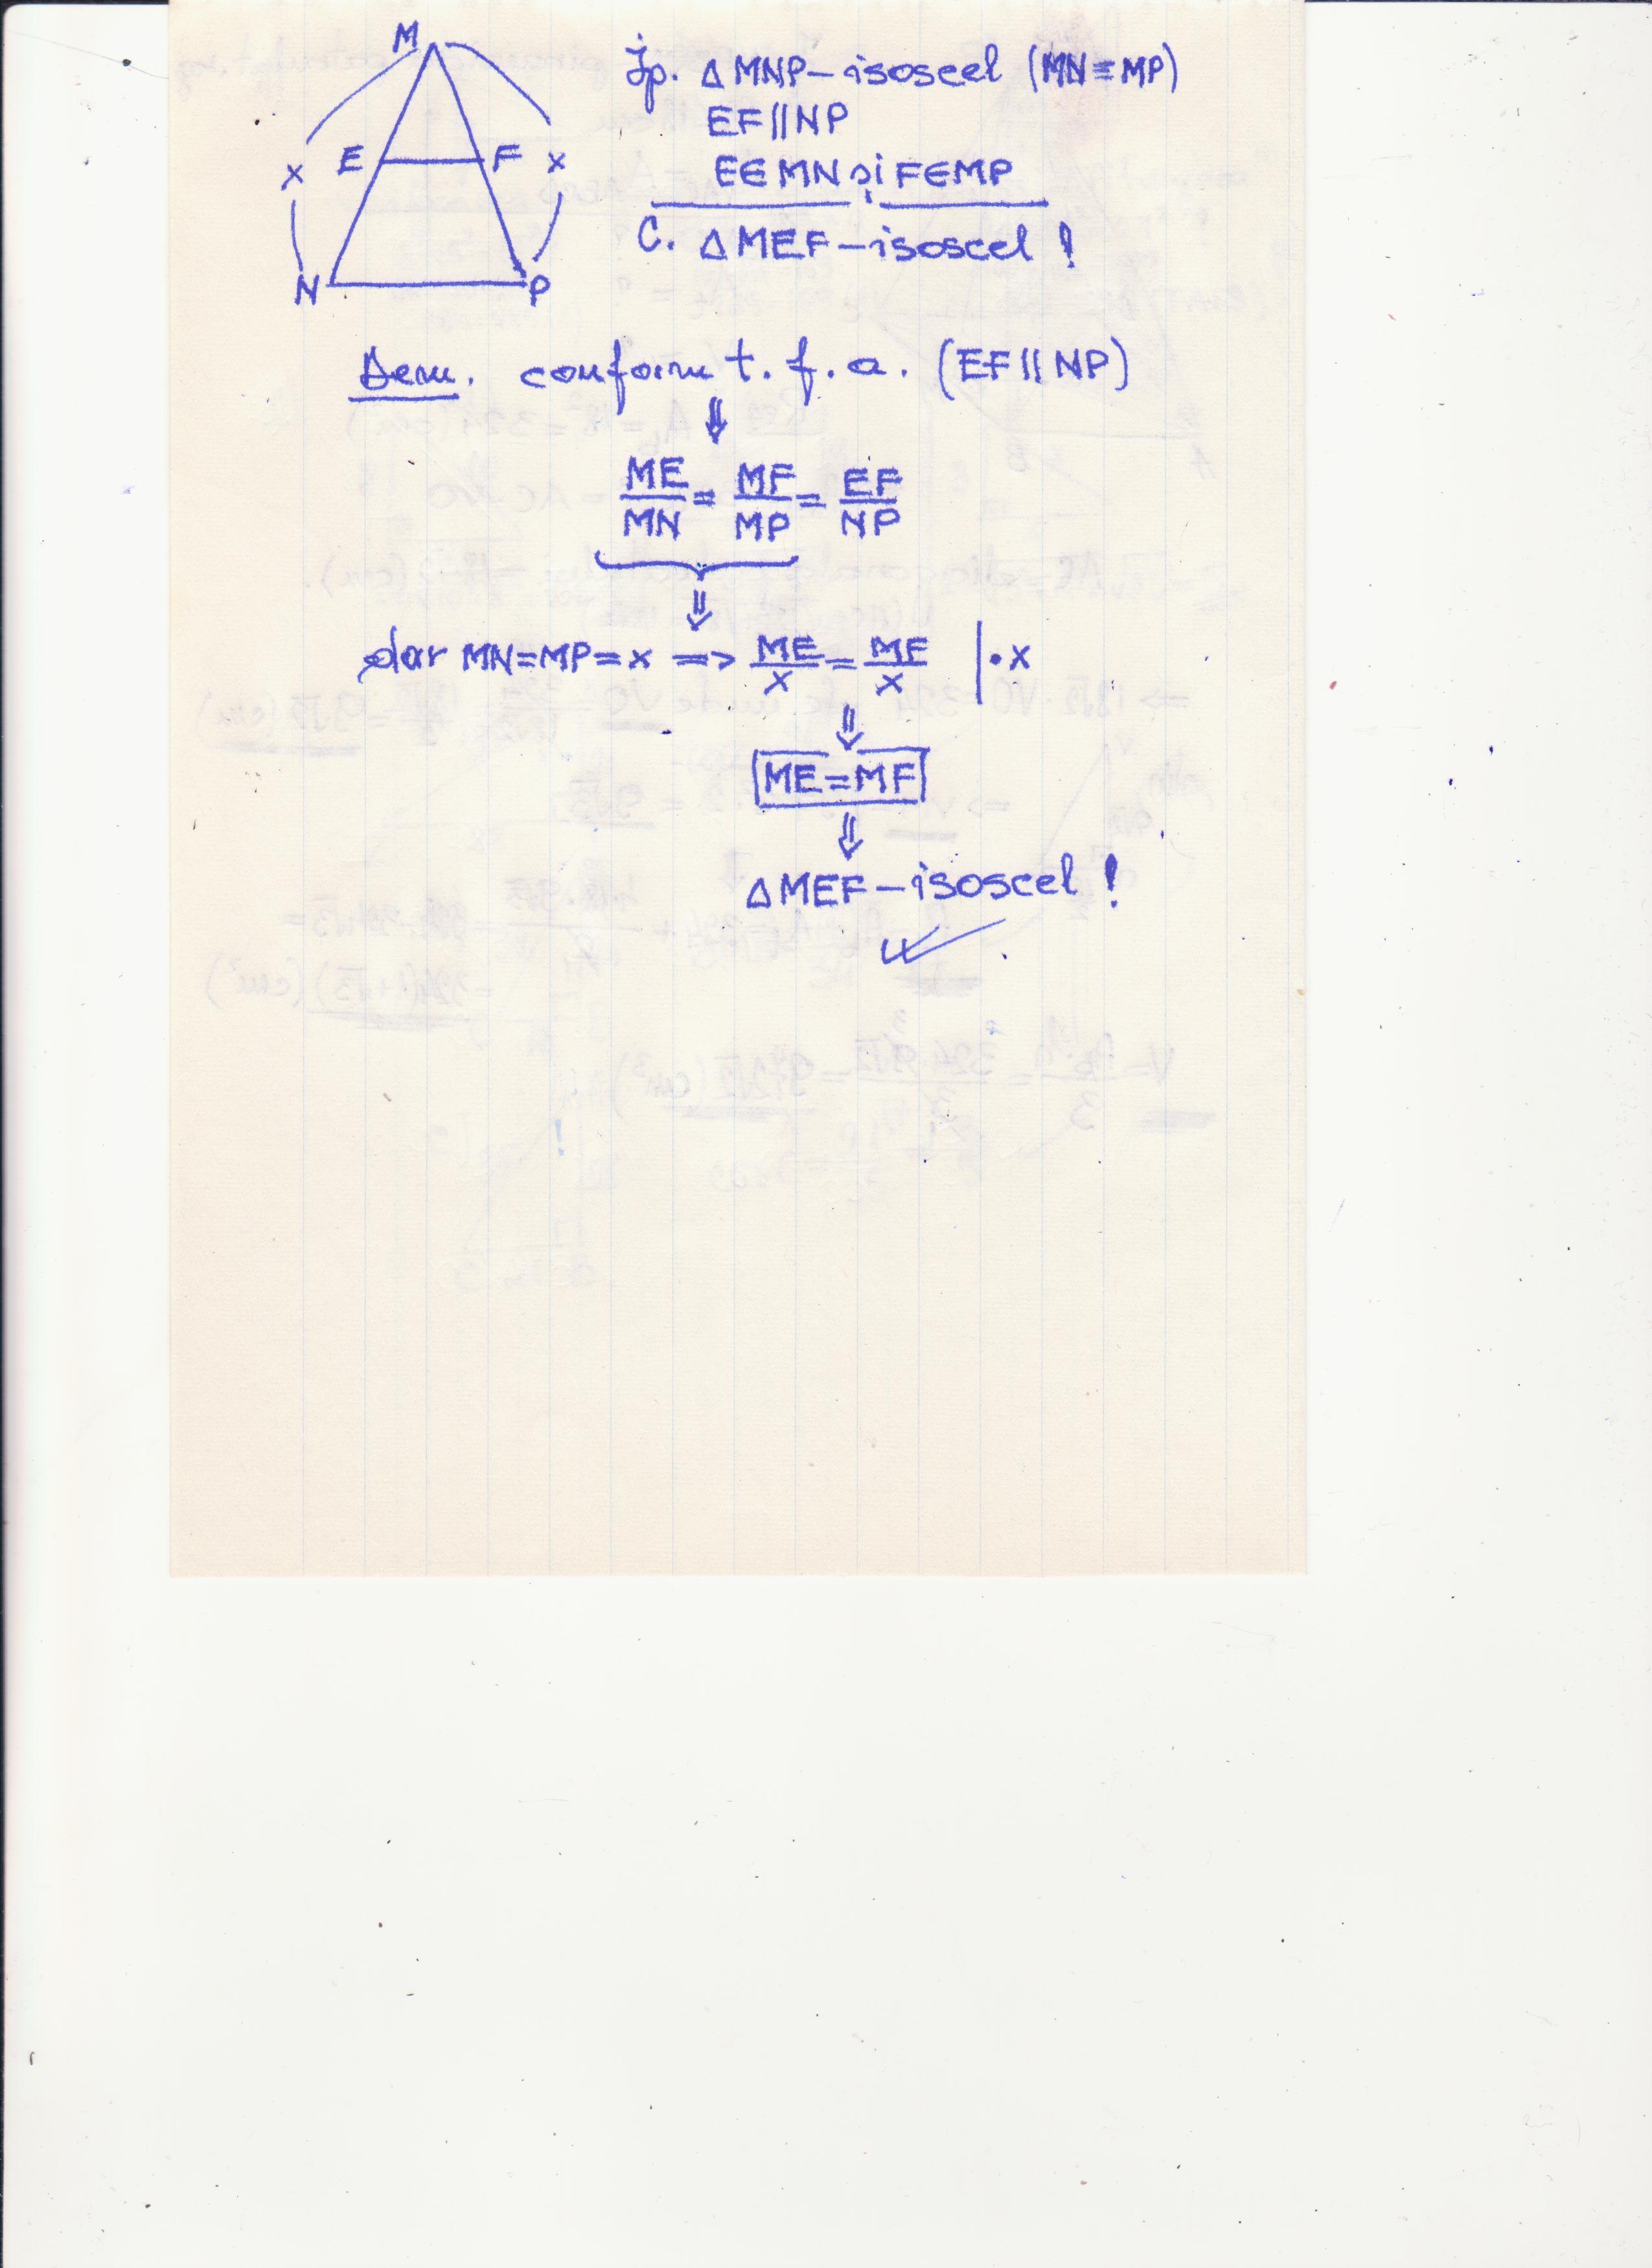 M
Ip. Δ MNP – isoscel (MN ≡ MP)
EF || NP
x E F x
E∈MN și F∈MP
C. Δ MEF – isoscel !
N P
Dem. conform t. f. a. (EF || NP)
⇓
ME/MN = MF/MP = EF/NP
⇓
dar MN=MP=x => ME/x = MF/x | • x
⇓
ME=MF
⇓
Δ MEF – isoscel !